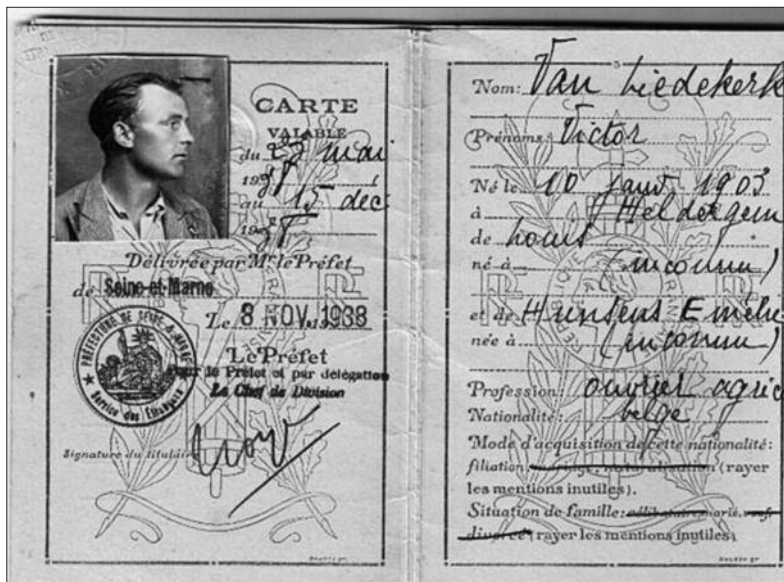 CARTE
VALABLE
du 23 mai
1938
au 15 déc
1938
Délivrée par Mr le Préfet
de Seine-et-Marne
Le 8 NOV. 1938
Le Préfet
Pour le Préfet et par délégation
Le Chef de Division
PRÉFECTURE DE SEINE & MARNE
Service des Étrangers
Signature du titulaire
Nom: Van Liedekerk
Prénoms: Victor
Né le 10 janv 1903
à Heldergem
de Louis
né à (inconnu)
et de Hunsens Emélie
née à (inconnu)
Profession: ouvrier agric
Nationalité: belge
Mode d'acquisition de cette nationalité:
filiation, mariage, naturalisation (rayer
les mentions inutiles).
Situation de famille: célibataire, marié, veuf
divorcé (rayer les mentions inutiles)
RÉPUBLIQUE FRANÇAISE
RF
RF